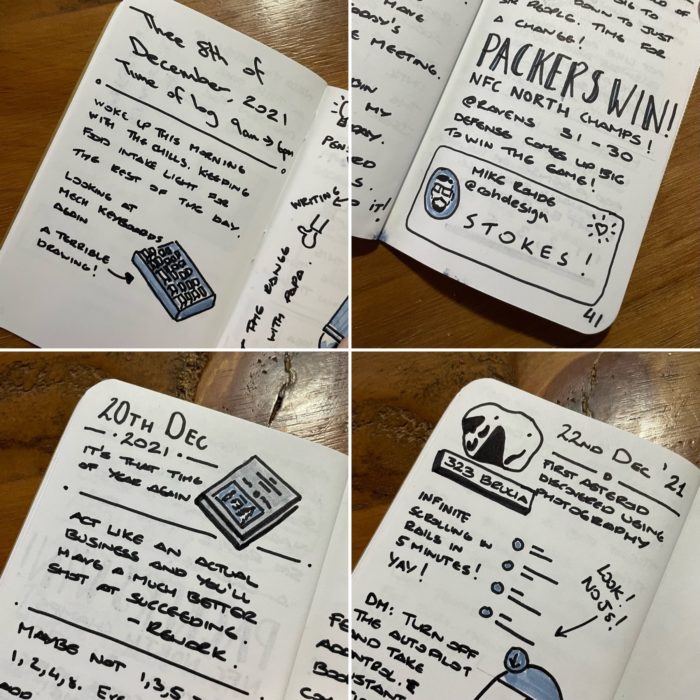 Thee 8th of
December, 2021
Time of log 9am → 6pm
WOKE UP THIS MORNING
WITH THE CHILLS. KEEPING
FOOD INTAKE LIGHT FOR
THE REST OF THE DAY.
LOOKING AT
MECH KEYBOARDS
AGAIN
A TERRIBLE
DRAWING!
PEN
WRITING
WITH PAPA.
HAVE
MEETING.
MY
DOWN TO JUST
SIX PEOPLE. TIME FOR
A CHANGE!
PACKERS WIN!
NFC NORTH CHAMPS!
@RAVENS 31-30
DEFENSE COMES UP BIG
TO WIN THE GAME!
MIKE ROHDE
@rohdesign
STOKES!
41
20TH DEC
2021
IT'S THAT TIME
OF YEAR AGAIN
ACT LIKE AN ACTUAL
BUSINESS AND YOU'LL
HAVE A MUCH BETTER
SHOT AT SUCCEEDING
- REWORK.
MAYBE NOT 1,3,5
1,2,4,8.
22ND DEC '21
323 BRUCIA
FIRST ASTEROID
DISCOVERED USING
PHOTOGRAPHY
INFINITE
SCROLLING IN
RAILS IN
5 MINUTES!
YAY!
LOOK!
NO JS!
DM: TURN OFF
THE AUTOPILOT
AND TAKE
CONTROL.